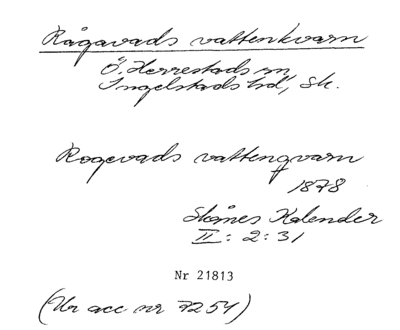 Rågavads vattenkvarn
Ö. Herrestads sn
Ingelstads hd, Sk.
Rogevads vattenqvarn
1878
Skånes Kalender
II: 2: 31
Nr 21813
(Ur acc nr 7254)